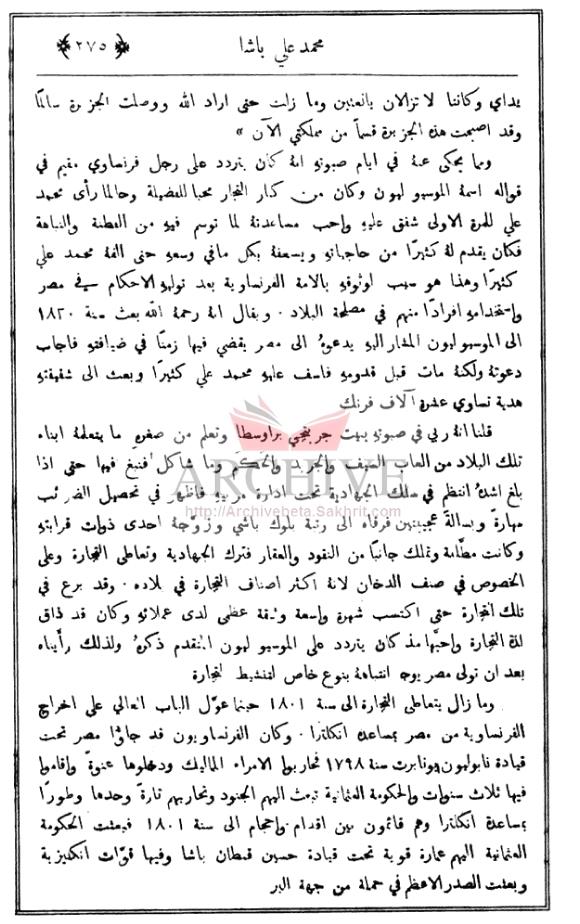 محمد علي باشا
﴿ ٢٧٥ ﴾
يداي وكانتا لا تزالان بانعتين وما زلت حتى اراد الله ووصلت الجزيرة سالمًا
وقد اصبحت هذه الجزيرة قسماً من مملكتي الآن »
ومما يحكى عنهُ في ايام صبوتهِ انهُ كان يتردد على رجل فرنساوي مقيم في
قواله اسمهُ الموسيو ليون وكان من كبار التجار محبا للفضيلة وحالما رأى محمد
علي للمرة الاولى شفق عليهِ واحب مساعدتهُ لما توسم فيهِ من الفطنة والنباهة
فكان يقدم لهُ كثيرًا من حاجياتهِ ويسعفهُ بكل ما في وسعهِ حتى الفهُ محمد علي
كثيرًا وهذا هو سبب وثوقهِ بالامة الفرنساوية بعد توليهِ الاحكام في مصر
واستخدامهِ افرادًا منهم في مصلحة البلاد . ويقال انهُ رحمهُ الله بعث سنة ١٨٢٠
الى الموسيو ليون المشار اليهِ يدعوهُ الى مصر يقضي فيها زمنًا في ضيافتهِ فاجاب
دعوتهُ ولكنهُ مات قبل قدومهِ فاسف عليهِ محمد علي كثيرًا وبعث الى شقيقتهِ
هدية تساوي عشرة آلاف فرنك
قلنا انهُ ربي في صبوتهِ ببيت جربتجي براوسطا وتعلم من صغرهِ ما يتعلمهُ ابناء
تلك البلاد من العاب السيف والجريد والحكم وما شاكل فنبغ فيها حتى اذا
بلغ اشدهُ انتظم في سلك الجهادية تحت ادارة مربيهِ فاظهر في تحصيل الضرائب
مهارةً وبسالةً عجيبتين فرقاهُ الى رتبة بلوك باشي وزوَّجهُ احدى ذوات قرابتهِ
وكانت مطلَّقة وتملك جانبًا من النقود والعقار فترك الجهادية وتعاطى التجارة وعلى
الخصوص في صنف الدخان لانهُ اكثر اصناف التجارة في بلاده . وقد برع في
تلك التجارة حتى اكتسب شهرة واسعة وثقة عظمى لدى عملائهِ وكان قد ذاق
لذة التجارة واحبَّها مذ كان يتردد على الموسيو ليون المتقدم ذكرهُ ولذلك رأيناه
بعد ان تولى مصر يوجه انتباههُ بنوع خاص لتنشيط التجارة
وما زال يتعاطى التجارة الى سنة ١٨٠١ حينما عوَّل الباب العالي على اخراج
الفرنساوية من مصر بمساعدة انكلترا . وكان الفرنساويون قد جاؤا مصر تحت
قيادة نابوليون بونابرت سنة ١٧٩٨ فحاربوا الامراء المماليك ودخلوها عنوةً واقاموا
فيها ثلاث سنوات والحكومة العثمانية تبعث اليهم الجنود وتحاربهم تارةً وحدها وطورًا
بمساعدة انكلترا وهم قائمون بين اقدام واحجام الى سنة ١٨٠١ فبعثت الحكومة
العثمانية اليهم عمارة قوية تحت قيادة حسين قبطان باشا وفيها قوَّات انكليزية
وبعثت الصدر الاعظم في حملة من جهة البر
ARCHIVE
http://Archivebeta.Sakhrit.com